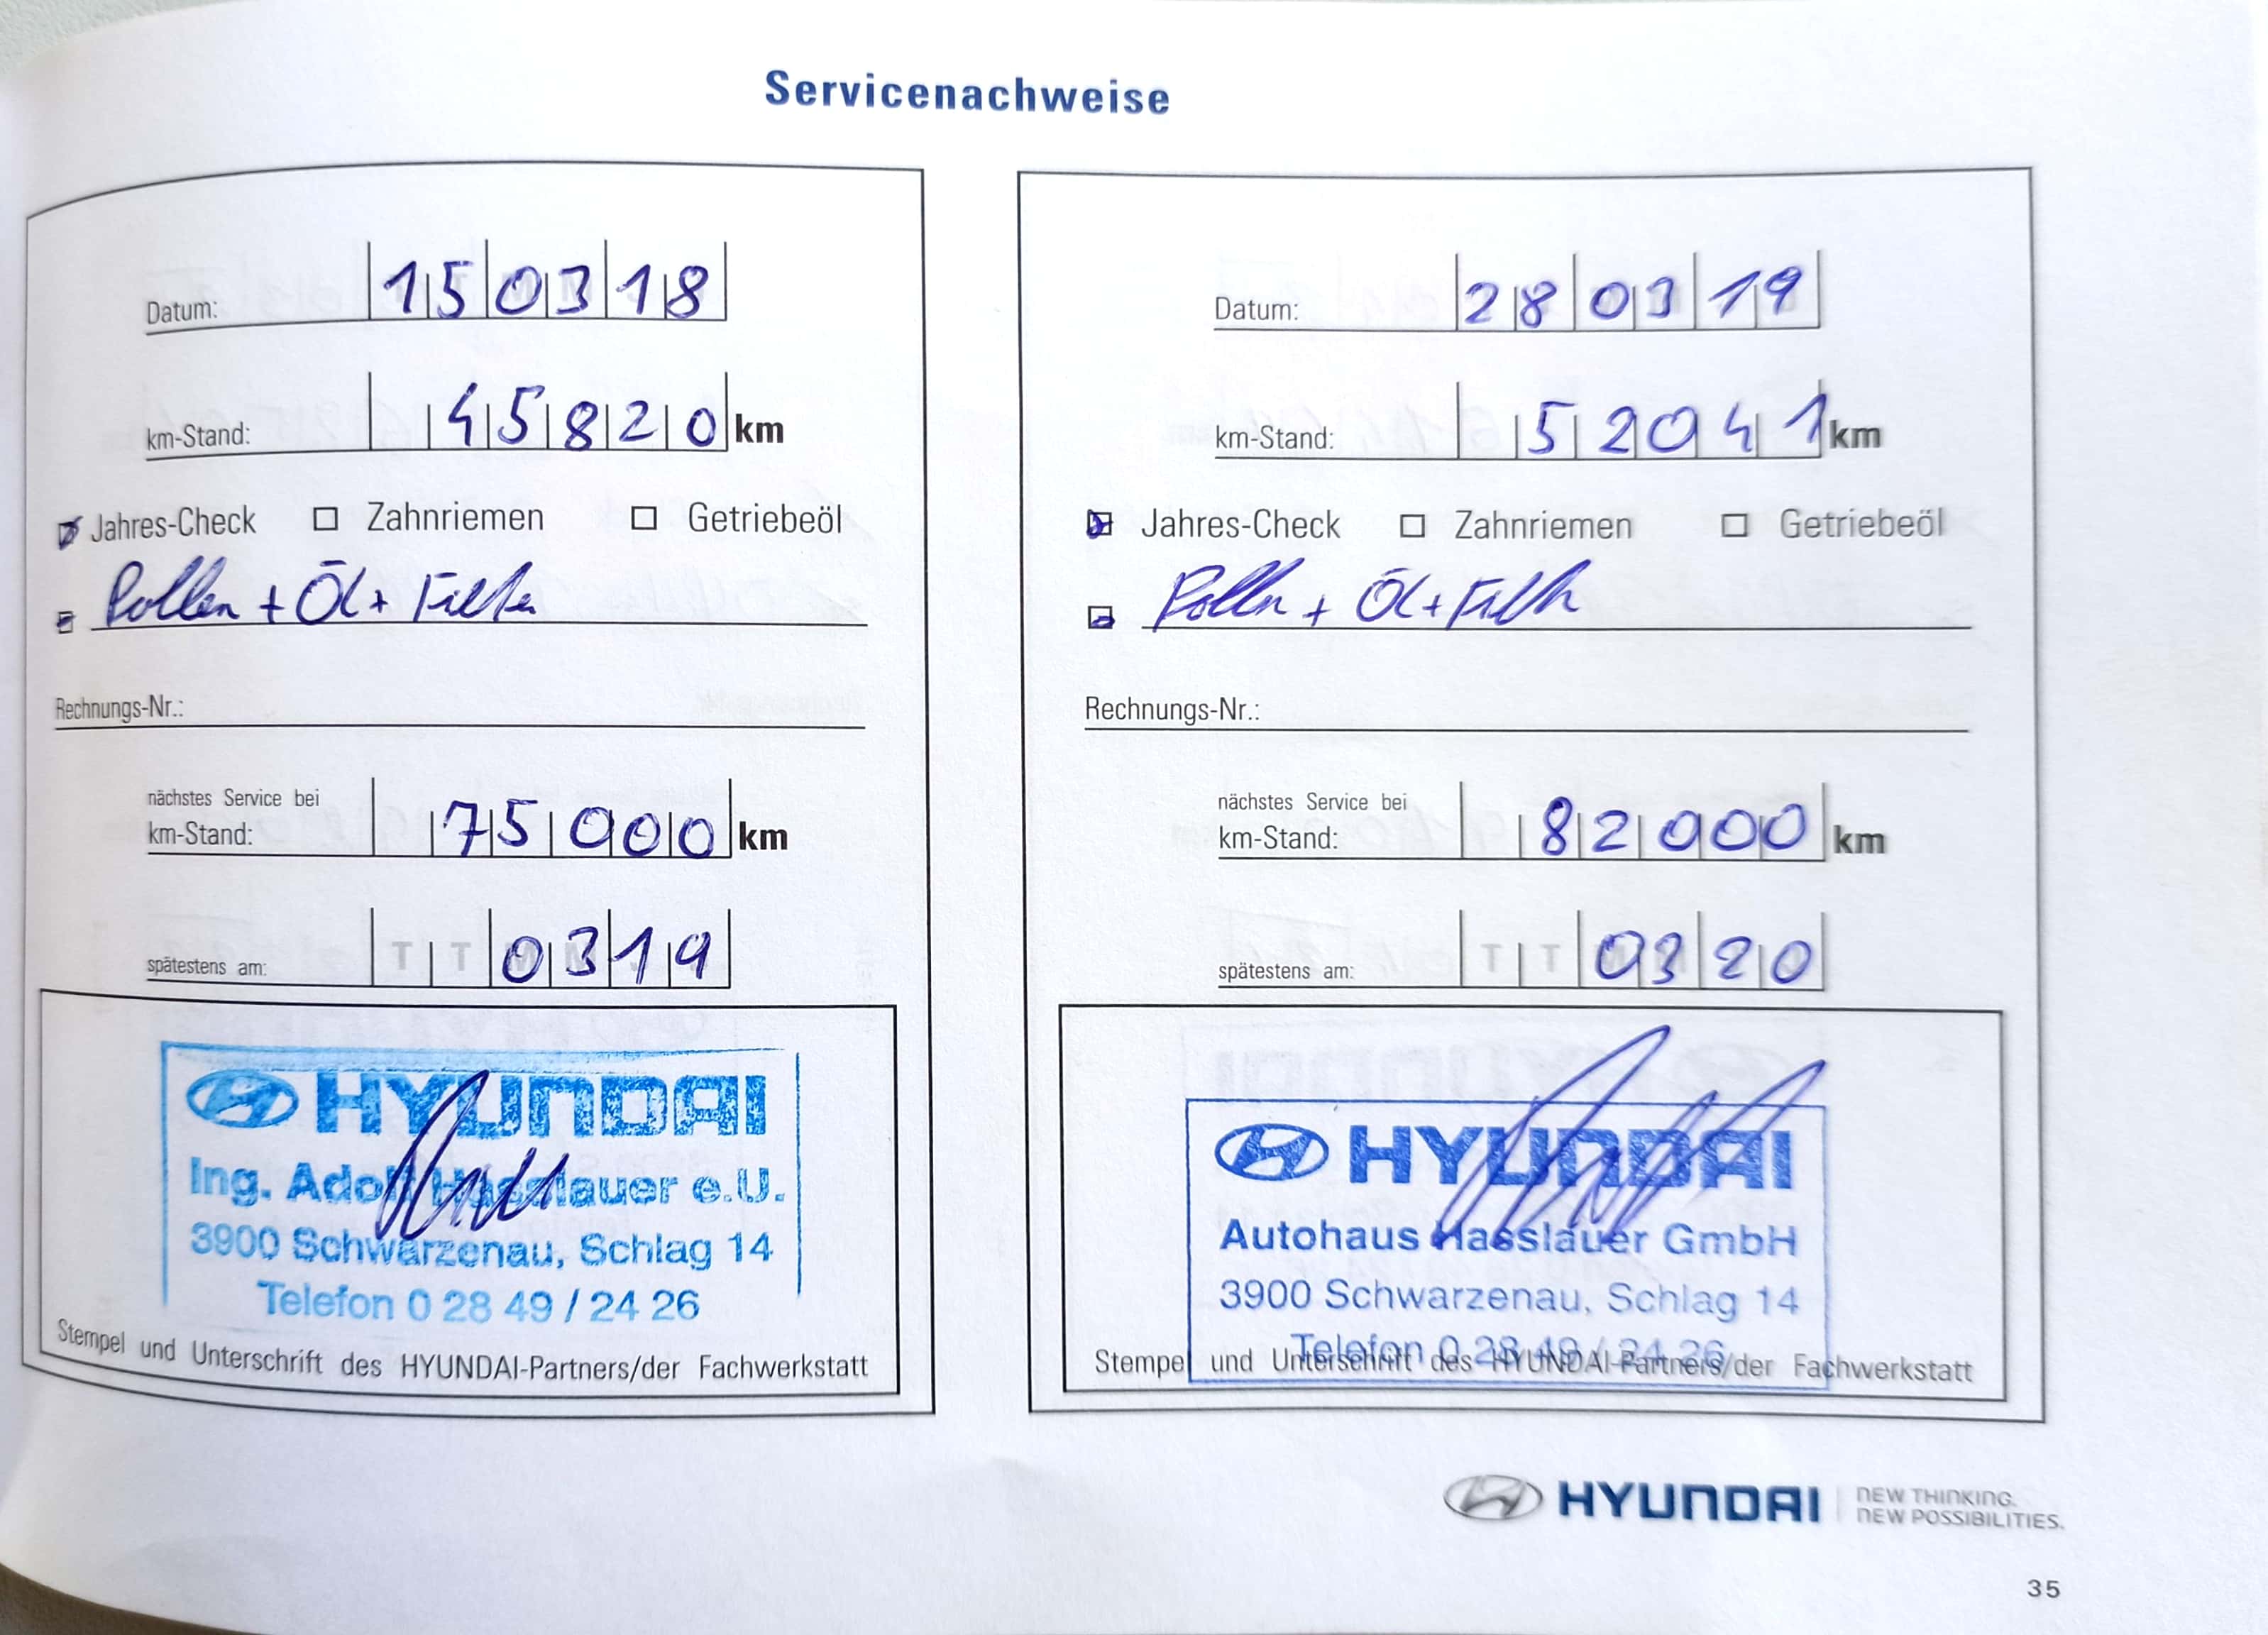 Servicenachweise
Datum: 15 03 18
km-Stand: 45820 km
Jahres-Check Zahnriemen Getriebeöl
Pollen + Öl + Filter
Rechnungs-Nr.:
nächstes Service bei
km-Stand: 75000 km
spätestens am: T T 03 19
HYUNDAI
Ing. Adolf Hasslauer e.U.
3900 Schwarzenau, Schlag 14
Telefon 0 28 49 / 24 26
Stempel und Unterschrift des HYUNDAI-Partners/der Fachwerkstatt
Datum: 28 03 19
km-Stand: 52041 km
Jahres-Check Zahnriemen Getriebeöl
Pollen + Öl + Filter
Rechnungs-Nr.:
nächstes Service bei
km-Stand: 82000 km
spätestens am: T T 03 20
HYUNDAI
Autohaus Hasslauer GmbH
3900 Schwarzenau, Schlag 14
Telefon 0 28 49 / 24 26
Stempel und Unterschrift des HYUNDAI-Partners/der Fachwerkstatt
HYUNDAI
NEW THINKING.
NEW POSSIBILITIES.
35